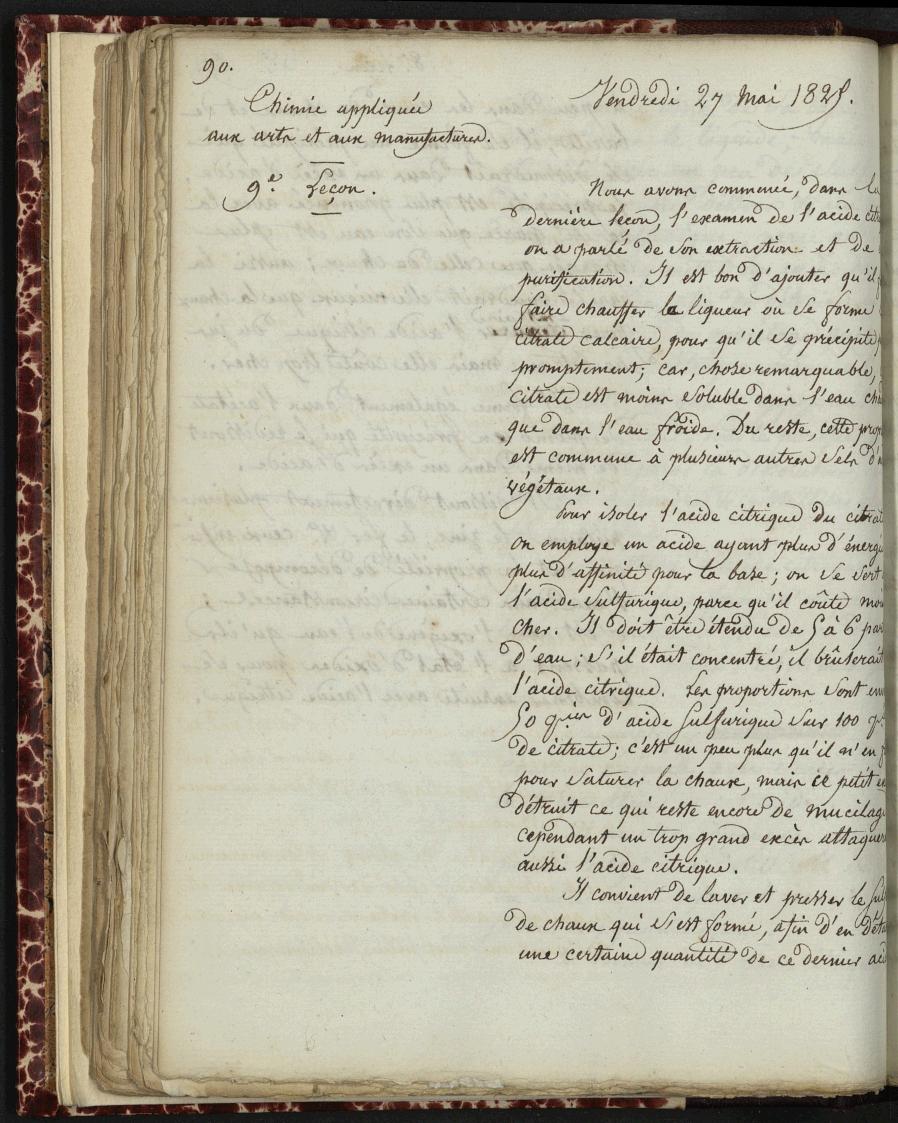 90.
Chimie appliquée
aux arts et aux manufactures.
9.e Leçon.
Vendredi 27 Mai 1825.
Nous avons commencé, dans la
dernière leçon, l'examen de l'acide citr
on a parlé de son extraction et de
purification. Il est bon d'ajouter qu'il
faire chauffer la liqueur où se forme
citrate calcaire, pour qu'il se précipite
promptement; car, chose remarquable,
citrate est moins soluble dans l'eau cha
que dans l'eau froide. Du reste, cette prop
est commune à plusieurs autres sels d'a
végétaux.
Pour isoler l'acide citrique du citrat
on employe un acide ayant plus d'énergie
plus d'affinité pour la base; on se sert
l'acide sulfurique, parce qu'il coûte moi
cher. Il doit être étendu de 5 à 6 par
d'eau; s'il était concentré, il brûlerait
l'acide citrique. Les proportions sont env
50 p.ies d'acide sulfurique sur 100 p.
de citrate; c'est un peu plus qu'il n'en f
pour saturer la chaux, mais ce petit ex
détruit ce qui reste encore de mucilage
cependant un trop grand excès attaquer
aussi l'acide citrique.
Il convient de laver et presser le sul
de chaux qui s'est formé, afin d'en déta
une certaine quantité de ce dernier aci